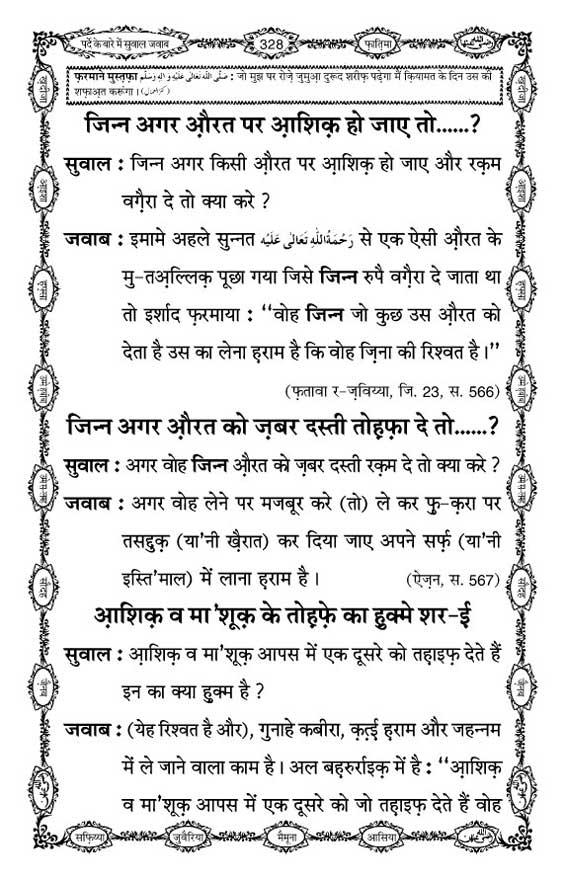 पर्दे के बारे में सुवाल जवाब
328
फ़ातिमा
फ़रमाने मुस्तफ़ा صَلَّى اللّٰهُ تَعَالٰى عَلَيْهِ وَاٰلِهٖ وَسَلَّم : जो मुझ पर रोज़े जुमुआ़ दुरूद शरीफ़ पढ़ेगा मैं क़ियामत के दिन उस की
शफ़ाअ़त करूंगा।
जिन्न अगर औ़रत पर आ़शिक़ हो जाए तो......?
सुवाल : जिन्न अगर किसी औ़रत पर आ़शिक़ हो जाए और रक़म
वग़ैरा दे तो क्या करे ?
जवाब : इमामे अहले सुन्नत رَحْمَةُ اللّٰهِ تَعَالٰى عَلَيْه से एक ऐसी औ़रत के
मु-तअ़ल्लिक़ पूछा गया जिसे जिन्न रुपै वग़ैरा दे जाता था
तो इर्शाद फ़रमाया : ‘‘वोह जिन्न जो कुछ उस औ़रत को
देता है उस का लेना ह़राम है कि वोह ज़िना की रिश्वत है।’’
(फ़तावा र-ज़विय्या, जि. 23, स. 566)
जिन्न अगर औ़रत को ज़बर दस्ती तोह़फ़ा दे तो......?
सुवाल : अगर वोह जिन्न औ़रत को ज़बर दस्ती रक़म दे तो क्या करे ?
जवाब : अगर वोह लेने पर मजबूर करे (तो) ले कर फु-क़रा पर
तसद्दुक़ (या'नी ख़ैरात) कर दिया जाए अपने सर्फ़ (या'नी
इस्ति'माल) में लाना ह़राम है।
(ऐज़न, स. 567)
आ़शिक़ व मा'शूक़ के तोह़फ़े का हुक्मे शर-ई
सुवाल : आ़शिक़ व मा'शूक़ आपस में एक दूसरे को तह़ाइफ़ देते हैं
इन का क्या हुक्म है ?
जवाब : (येह रिश्वत है और), गुनाहे कबीरा, क़त़्ई ह़राम और जहन्नम
में ले जाने वाला काम है। अल बह़रुर्राइक़ में है : ‘‘आ़शिक़
व मा'शूक़ आपस में एक दूसरे को जो तह़ाइफ़ देते हैं वोह
सफ़िय्या
जुवैरिया
मैमूना
आसिया